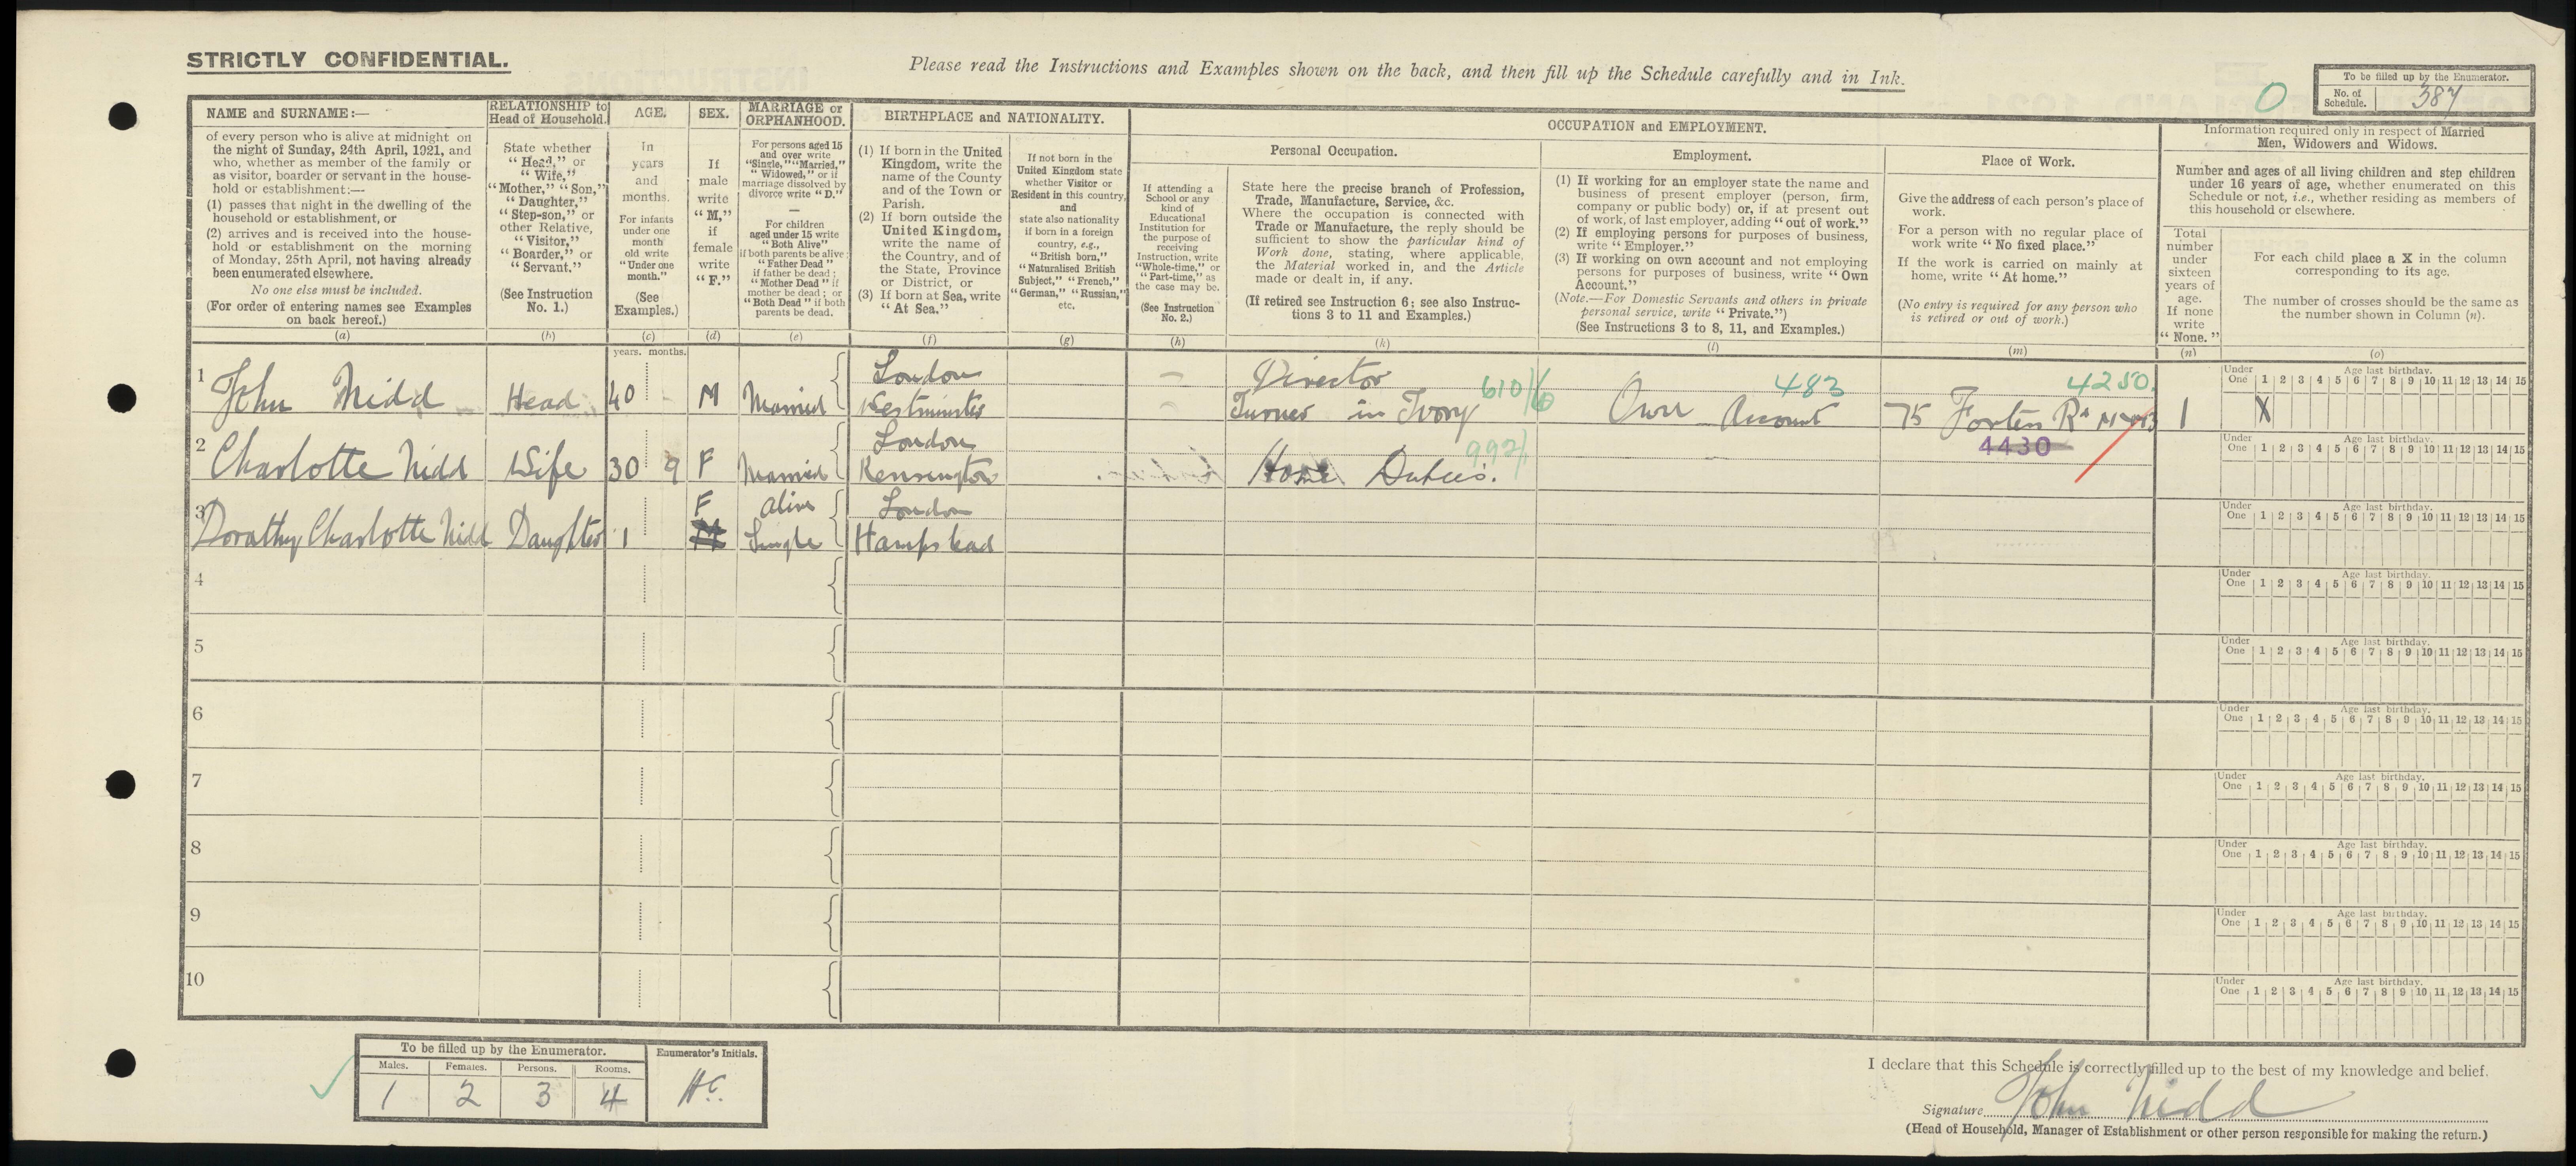 STRICTLY CONFIDENTIAL.
Please read the Instructions and Examples shown on the back, and then fill up the Schedule carefully and in Ink.
To be filled up by the Enumerator.
No. of Schedule. 387
0
NAME and SURNAME:—
of every person who is alive at midnight on
the night of Sunday, 24th April, 1921, and
who, whether as member of the family or
as visitor, boarder or servant in the house-
hold or establishment:—
(1) passes that night in the dwelling of the
household or establishment, or
(2) arrives and is received into the house-
hold or establishment on the morning
of Monday, 25th April, not having already
been enumerated elsewhere.
No one else must be included.
(For order of entering names see Examples
on back hereof.)
(a)
RELATIONSHIP to
Head of Household.
State whether
"Head," or
"Wife,"
"Mother," "Son,"
"Daughter,"
"Step-son," or
other Relative,
"Visitor,"
"Boarder," or
"Servant."
(See Instruction
No. 1.)
(b)
AGE.
In
years
and
months.
For infants
under one
month
old write
"Under one
month."
(See
Examples.)
(c)
SEX.
If
male
write
"M,"
if
female
write
"F."
(d)
MARRIAGE or
ORPHANHOOD.
For persons aged 15
and over write
"Single," "Married,"
"Widowed," or if
marriage dissolved by
divorce write "D."
—
For children
aged under 15 write
"Both Alive"
if both parents be alive;
"Father Dead"
if father be dead;
"Mother Dead" if
mother be dead; or
"Both Dead" if both
parents be dead.
(e)
BIRTHPLACE and NATIONALITY.
(1) If born in the United
Kingdom, write the
name of the County
and of the Town or
Parish.
(2) If born outside the
United Kingdom,
write the name of
the Country, and of
the State, Province
or District, or
(3) If born at Sea, write
"At Sea."
(f)
If not born in the
United Kingdom state
whether Visitor or
Resident in this country,
and
state also nationality
if born in a foreign
country, e.g.,
"British born,"
"Naturalised British
Subject," "French,"
"German," "Russian,"
etc.
(g)
OCCUPATION and EMPLOYMENT.
If attending a
School or any
kind of
Educational
Institution for
the purpose of
receiving
Instruction, write
"Whole-time," or
"Part-time," as
the case may be.
(See Instruction
No. 2.)
(h)
Personal Occupation.
State here the precise branch of Profession,
Trade, Manufacture, Service, &c.
Where the occupation is connected with
Trade or Manufacture, the reply should be
sufficient to show the particular kind of
Work done, stating, where applicable,
the Material worked in, and the Article
made or dealt in, if any.
(If retired see Instruction 6; see also Instruc-
tions 3 to 11 and Examples.)
(k)
Employment.
(1) If working for an employer state the name and
business of present employer (person, firm,
company or public body) or, if at present out
of work, of last employer, adding "out of work."
(2) If employing persons for purposes of business,
write "Employer."
(3) If working on own account and not employing
persons for purposes of business, write "Own
Account."
(Note.—For Domestic Servants and others in private
personal service, write "Private.")
(See Instructions 3 to 8, 11, and Examples.)
(l)
Place of Work.
Give the address of each person's place of
work.
For a person with no regular place of
work write "No fixed place."
If the work is carried on mainly at
home, write "At home."
(No entry is required for any person who
is retired or out of work.)
(m)
Information required only in respect of Married
Men, Widowers and Widows.
Number and ages of all living children and step children
under 16 years of age, whether enumerated on this
Schedule or not, i.e., whether residing as members of
this household or elsewhere.
Total
number
under
sixteen
years of
age.
If none
write
"None."
(n)
For each child place a X in the column
corresponding to its age.
The number of crosses should be the same as
the number shown in Column (n).
(o)
years. months.
1 John Nidd Head 40 - M Married London Westminster — Director Turner in Ivory 610/6 Own Account 483 75 Rd 4250 1 X
Under One Age last birthday. 1 2 3 4 5 6 7 8 9 10 11 12 13 14 15
2 Charlotte Nidd Wife 30 9 F Married London Kensington Home Duties. 992/ — 4430
Under One Age last birthday. 1 2 3 4 5 6 7 8 9 10 11 12 13 14 15
3 Dorathy Charlotte Nidd Daughter 1 F M Alive Single London Hampstead
Under One Age last birthday. 1 2 3 4 5 6 7 8 9 10 11 12 13 14 15
4 Under One Age last birthday. 1 2 3 4 5 6 7 8 9 10 11 12 13 14 15
5 Under One Age last birthday. 1 2 3 4 5 6 7 8 9 10 11 12 13 14 15
6 Under One Age last birthday. 1 2 3 4 5 6 7 8 9 10 11 12 13 14 15
7 Under One Age last birthday. 1 2 3 4 5 6 7 8 9 10 11 12 13 14 15
8 Under One Age last birthday. 1 2 3 4 5 6 7 8 9 10 11 12 13 14 15
9 Under One Age last birthday. 1 2 3 4 5 6 7 8 9 10 11 12 13 14 15
10 Under One Age last birthday. 1 2 3 4 5 6 7 8 9 10 11 12 13 14 15
To be filled up by the Enumerator.
Males. Females. Persons. Rooms.
1 2 3 4
Enumerator's Initials.
HC.
I declare that this Schedule is correctly filled up to the best of my knowledge and belief.
Signature John Nidd
(Head of Household, Manager of Establishment or other person responsible for making the return.)